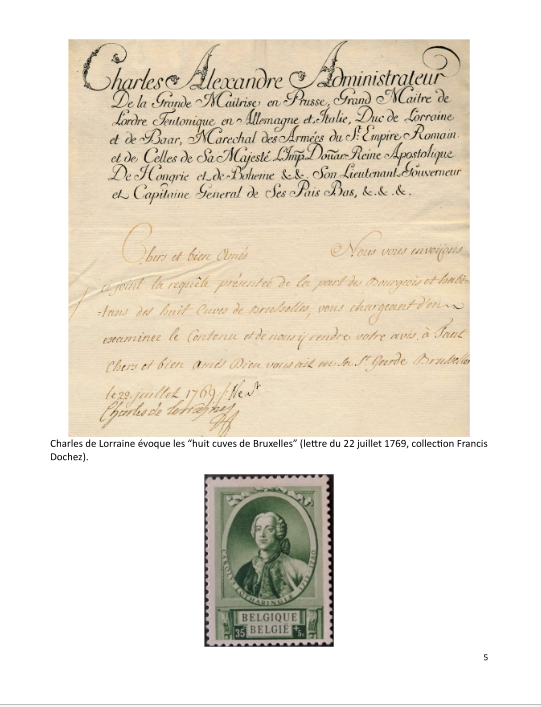 Charles Alexandre Administrateur
De la Grande Maitrise en Prusse, Grand Maitre de
Lordre Teutonique en Allemagne et Italie, Duc de Lorraine
et de Baar, Marechal des Armées du St. Empire Romain
et de Celles de Sa Majesté L'Imp. Douar. Reine Apostolique
De Hongrie et de Boheme &&. Son Lieutenant Gouverneur
et Capitaine General de Ses Païs Bas, &. &. &.
Chers et bien Amés Nous vous envoïons
cy joint la requête présentée de la part des Bourgeois et habi-
tans des huit Cuves de Bruxelles, vous chargeant d'en
examiner le Contenu et de nous y rendre votre avis, à Tant
Chers et bien amés Dieu vous ait en Sa Ste Garde Bruxelles
le 22 juillet 1769
Charles de Lorraine
Charles de Lorraine évoque les “huit cuves de Bruxelles” (lettre du 22 juillet 1769, collection Francis
Dochez).
BELGIQUE
BELGIË
35 +5c
5